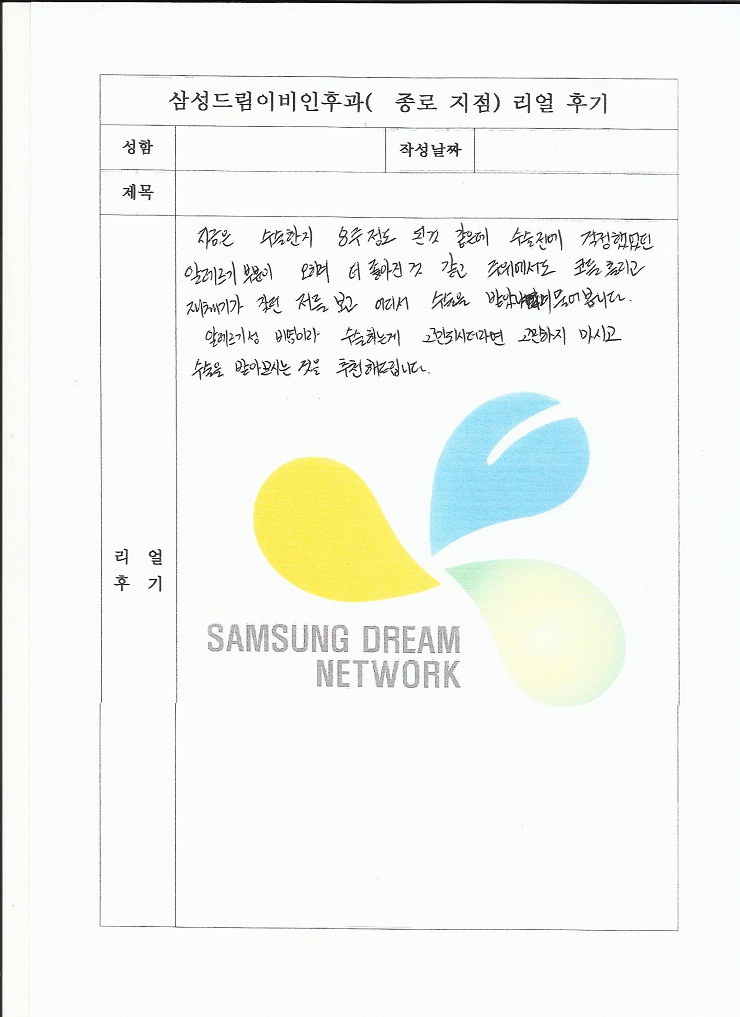 삼성드림이비인후과( 종로 지점) 리얼 후기
성함 작성날짜
제목
지금은 수술한지 8주정도 된것 같은데 수술전에 걱정했었던
알레르기 부분이 오히려 더 좋아진 것 같고 주위에서도 코를 흘리고
재채기가 잦던 저를 보고 어디서 수술을 받았냐며 물어봅니다.
알레르기성 비염이라 수술하는게 고민되시더라면 고민하지 마시고
수술을 받아보시는 것을 추천해드립니다.
리 얼
후 기
SAMSUNG DREAM
NETWORK